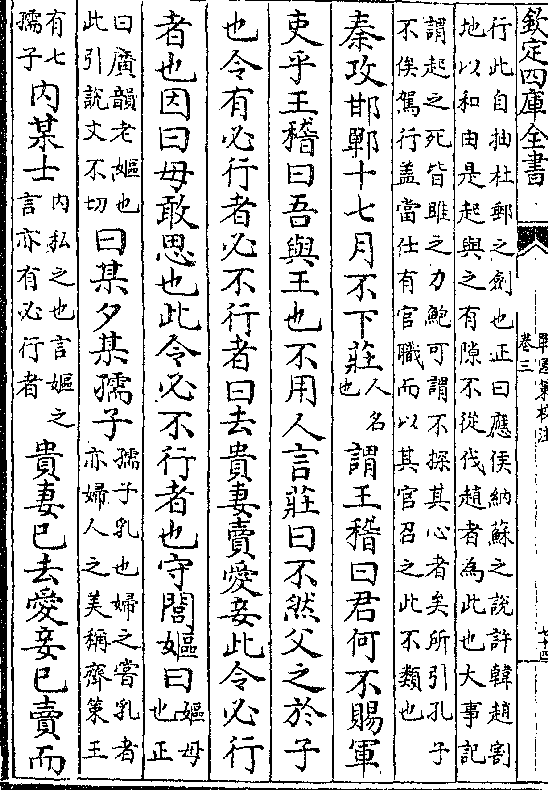 欽定四庫全書
卷三
行此自抽杜郵之劍也正曰應侯納蘇之說許韓趙割
地以和由是起與之有隙不從伐趙者為此也大事記
謂起之死皆雎之力鮑可謂不探其心者矣所引孔子
不俟駕行盖當仕有官職而以其官召之此不類也
秦攻邯鄲十七月不下莊人名也謂王稽曰君何不賜軍
吏乎王稽曰吾與王也不用人言莊曰不然父之於子
也令有必行者必不行者曰去貴妻賣愛妾此令必行
者也因曰毋敢思也此令必不行者也守閭嫗曰嫗母也正
曰廣韻老嫗也此引說文不切曰某夕某孺子孺子乳也婦之嘗乳者亦婦人之美稱齊策王
有七孺子內某士內私之也言嫗之言亦有必行者貴妻已去愛妾已賣而